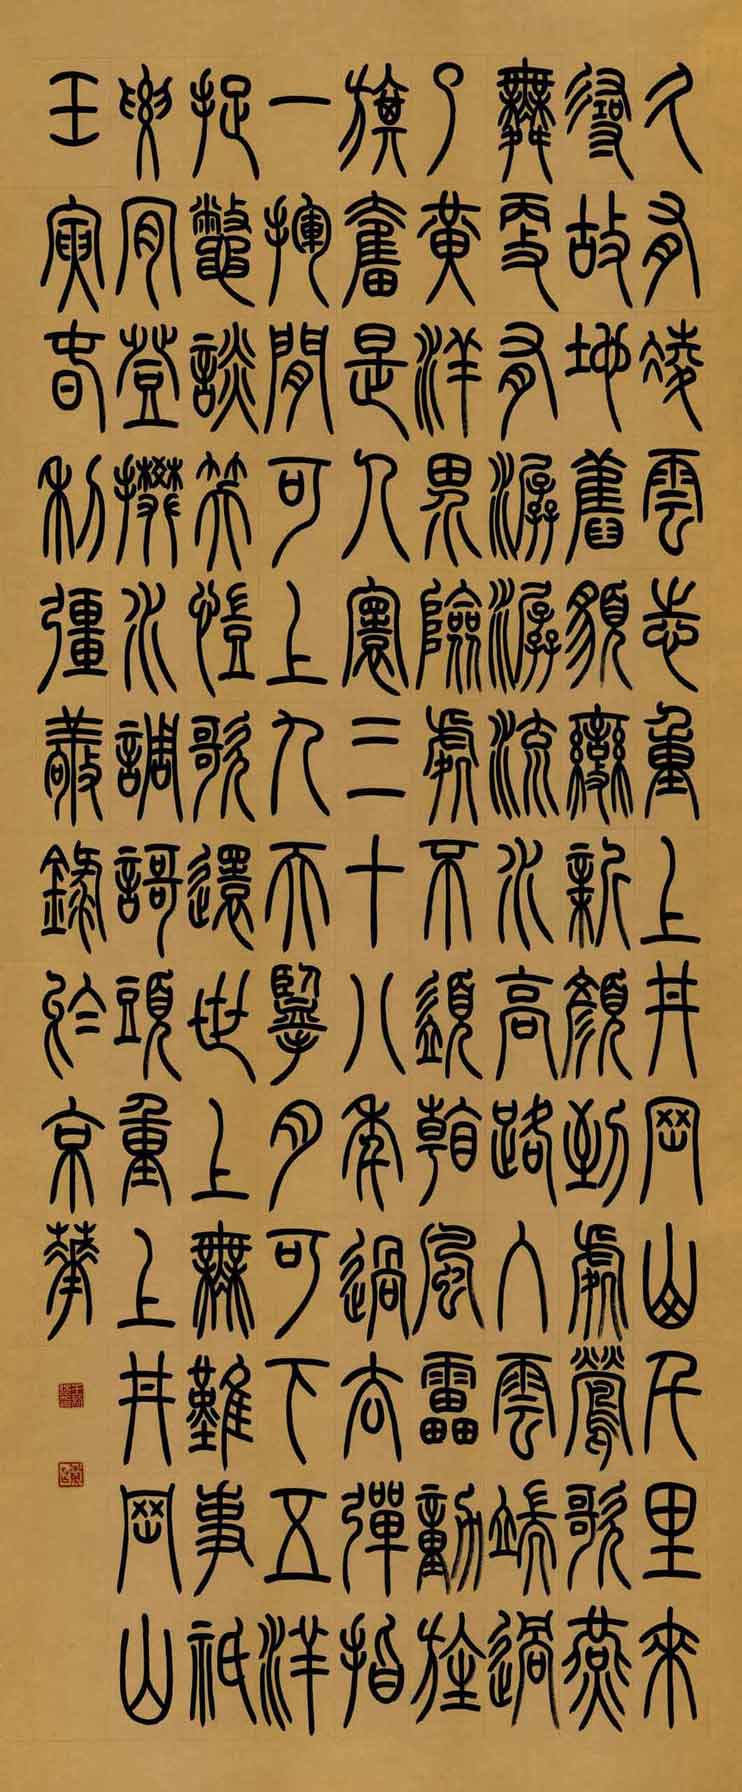 久有凌雲志重上井岡山千里來
尋故地舊貌變新顏到處鶯歌燕
舞更有潺潺流水高路入雲端過
了黃洋界險處不須看風雷動旌
旗奮是人寰三十八年過去彈指
一揮間可上九天攬月可下五洋
捉鱉談笑愷歌還世上無難事祇
要肯登攀水調謌頭重上井岡山
壬寅春利彊敬錄於京華